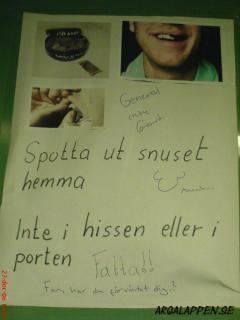 General
inte
Spotta ut snuset
hemma
Inte i hissen eller i
porten
Fatta!!
Fan, har du förväntat dig..?
ARGALAPPEN.SE